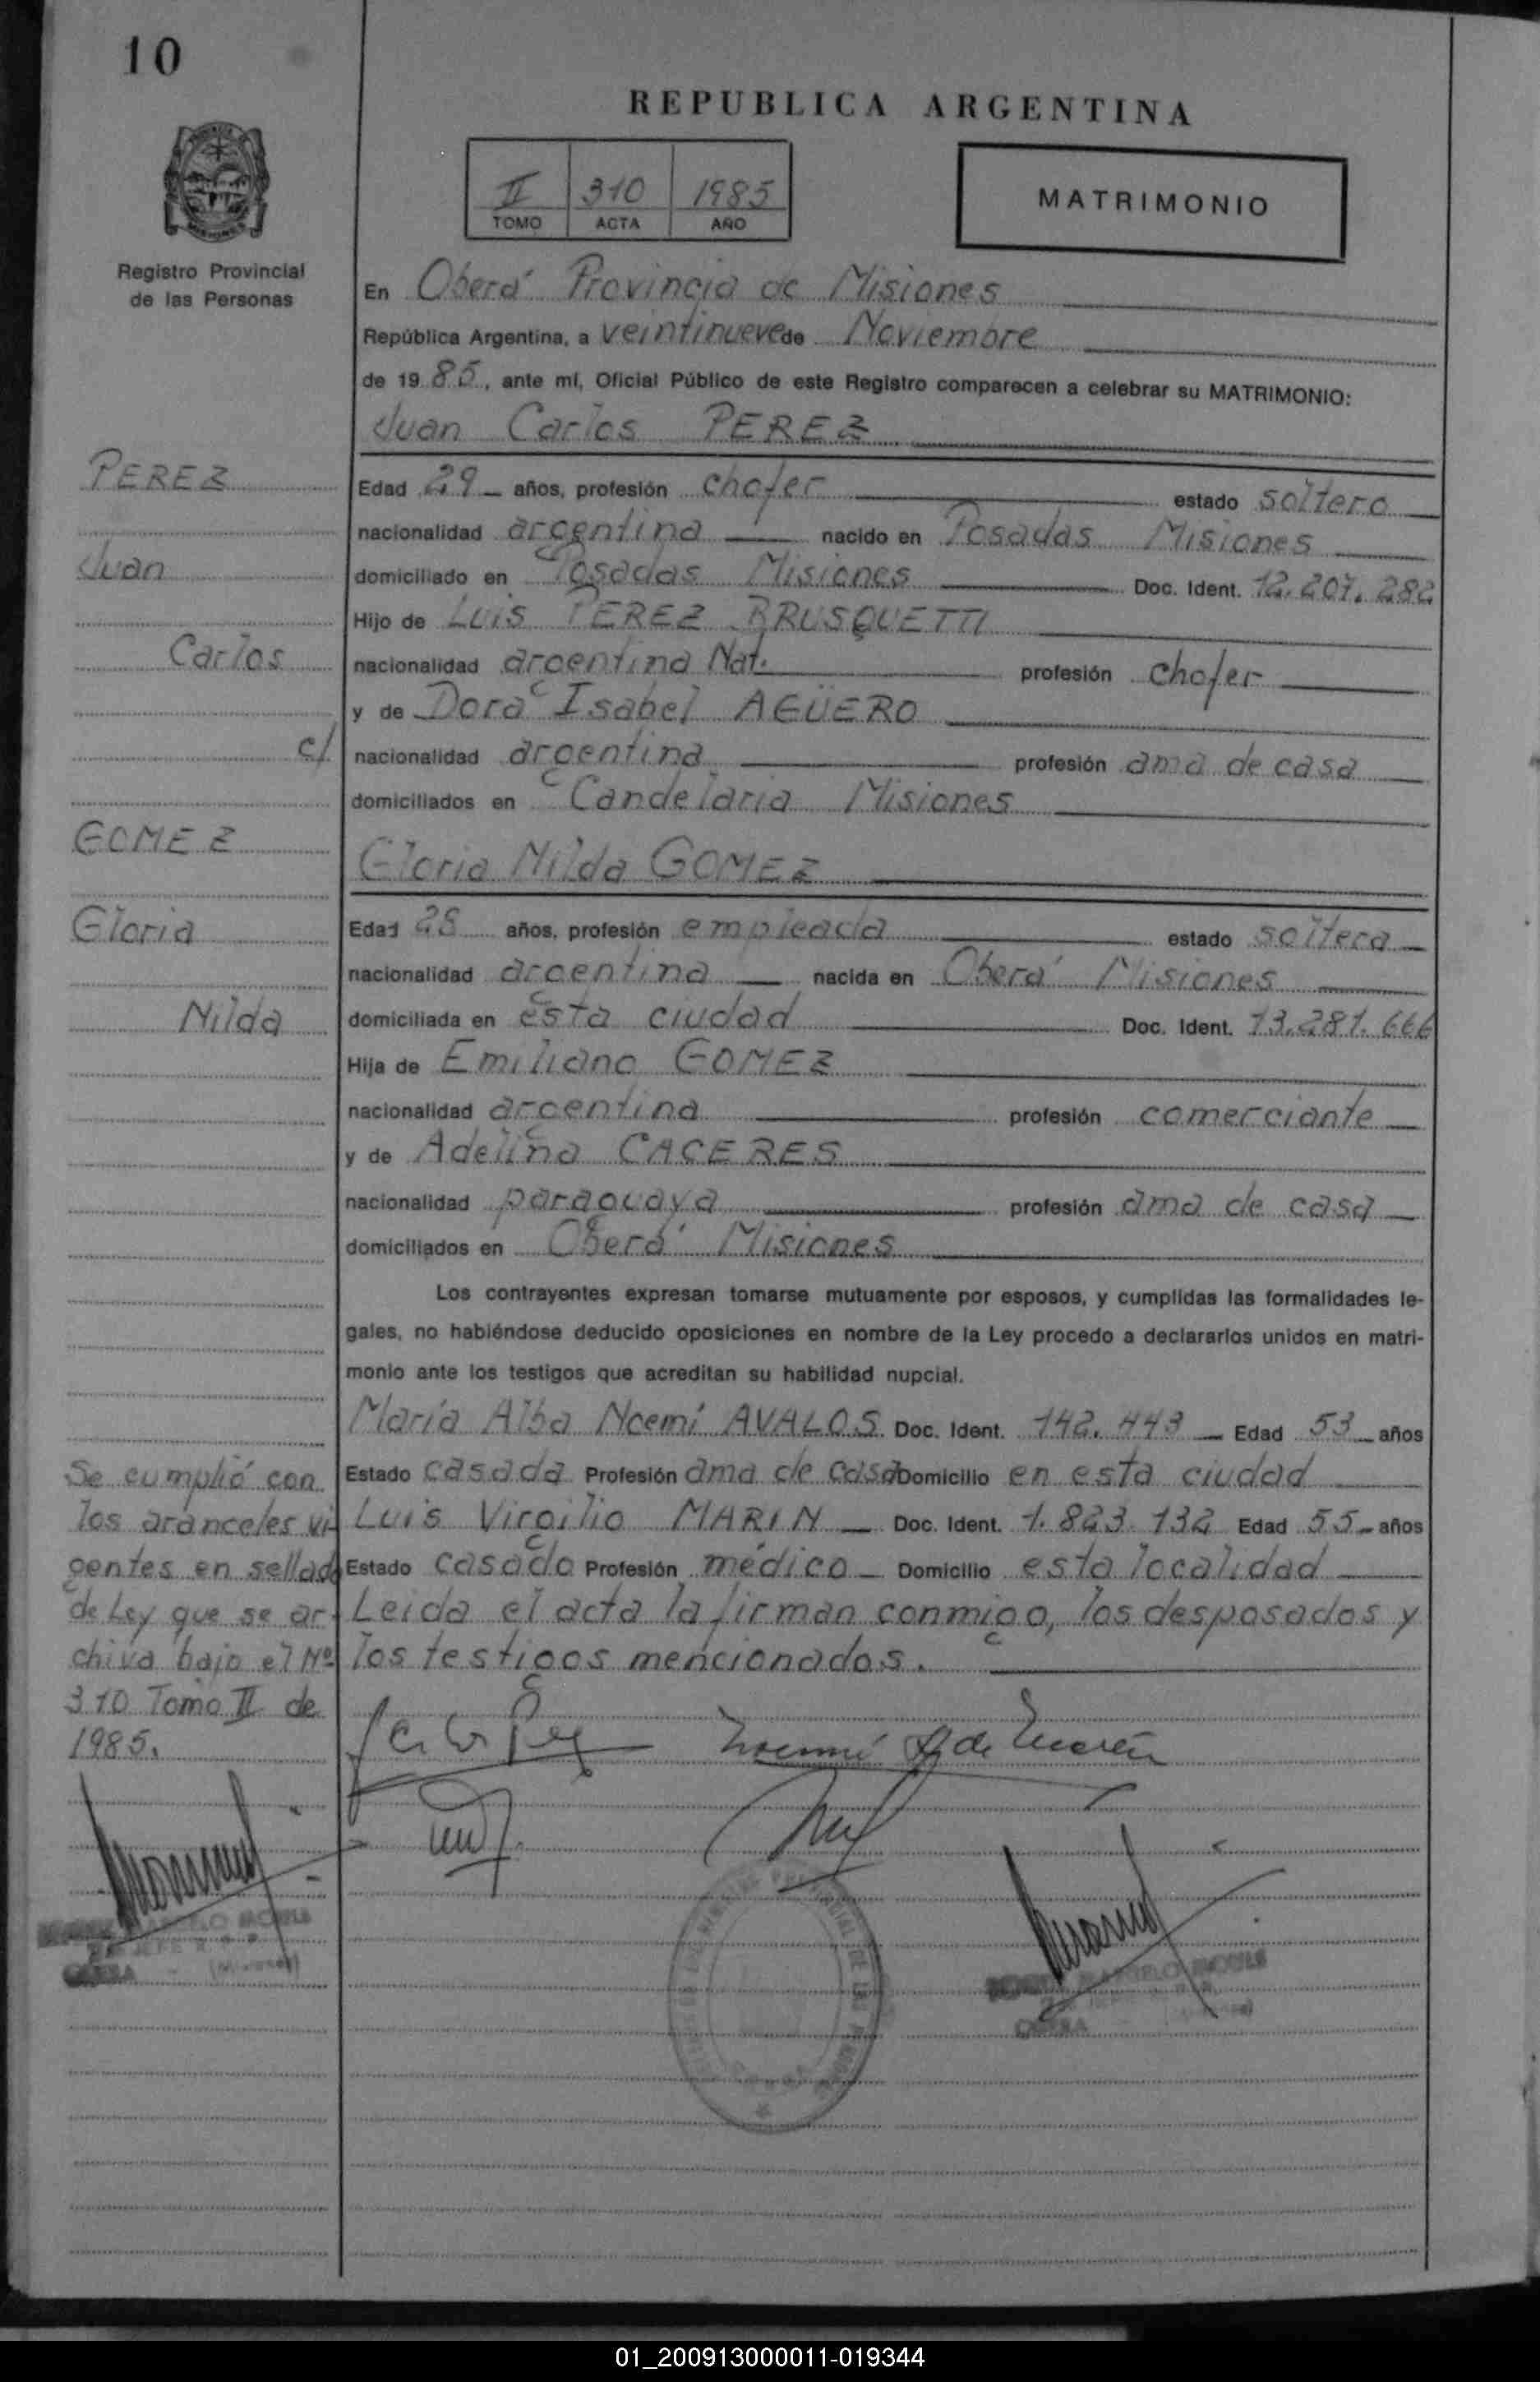 10
REPUBLICA ARGENTINA
II 310 1985
TOMO ACTA AÑO
MATRIMONIO
Registro Provincial
de las Personas
En Oberá Provincia de Misiones
República Argentina, a veintinueve de Noviembre
de 1985, ante mí, Oficial Público de este Registro comparecen a celebrar su MATRIMONIO:
Juan Carlos PEREZ
PEREZ
Juan
Carlos
c/.
GOMEZ
Gloria
Nilda
Edad 29 años, profesión chofer estado soltero
nacionalidad argentina nacido en Posadas Misiones
domiciliado en Posadas Misiones Doc. Ident. 12.207.282
Hijo de Luis PEREZ BRUSQUETTI
nacionalidad argentina Nat. profesión chofer
y de Dora Isabel AGÜERO
nacionalidad argentina profesión ama de casa
domiciliados en Candelaria Misiones
Gloria Nilda GOMEZ
Edad 28 años, profesión empleada estado soltera
nacionalidad argentina nacida en Oberá Misiones
domiciliada en esta ciudad Doc. Ident. 13.281.666
Hija de Emiliano GOMEZ
nacionalidad argentina profesión comerciante
y de Adelina CACERES
nacionalidad paraguaya profesión ama de casa
domiciliados en Oberá Misiones
Los contrayentes expresan tomarse mutuamente por esposos, y cumplidas las formalidades le-
gales, no habiéndose deducido oposiciones en nombre de la Ley procedo a declararlos unidos en matri-
monio ante los testigos que acreditan su habilidad nupcial.
María Alba Noemí AVALOS Doc. Ident. 142.443 Edad 53 años
Estado casada Profesión ama de casa Domicilio en esta ciudad
Luis Virgilio MARIN Doc. Ident. 1.823.132 Edad 55 años
Estado casado Profesión médico Domicilio esta localidad
Leida el acta la firman conmigo, los desposados y
los testigos mencionados.
Se cumplió con
los aranceles vi-
gentes en sellado
de Ley que se ar-
chiva bajo el Nº
310 Tomo II de
1985.
Noemí A de Marín
01_200913000011-019344